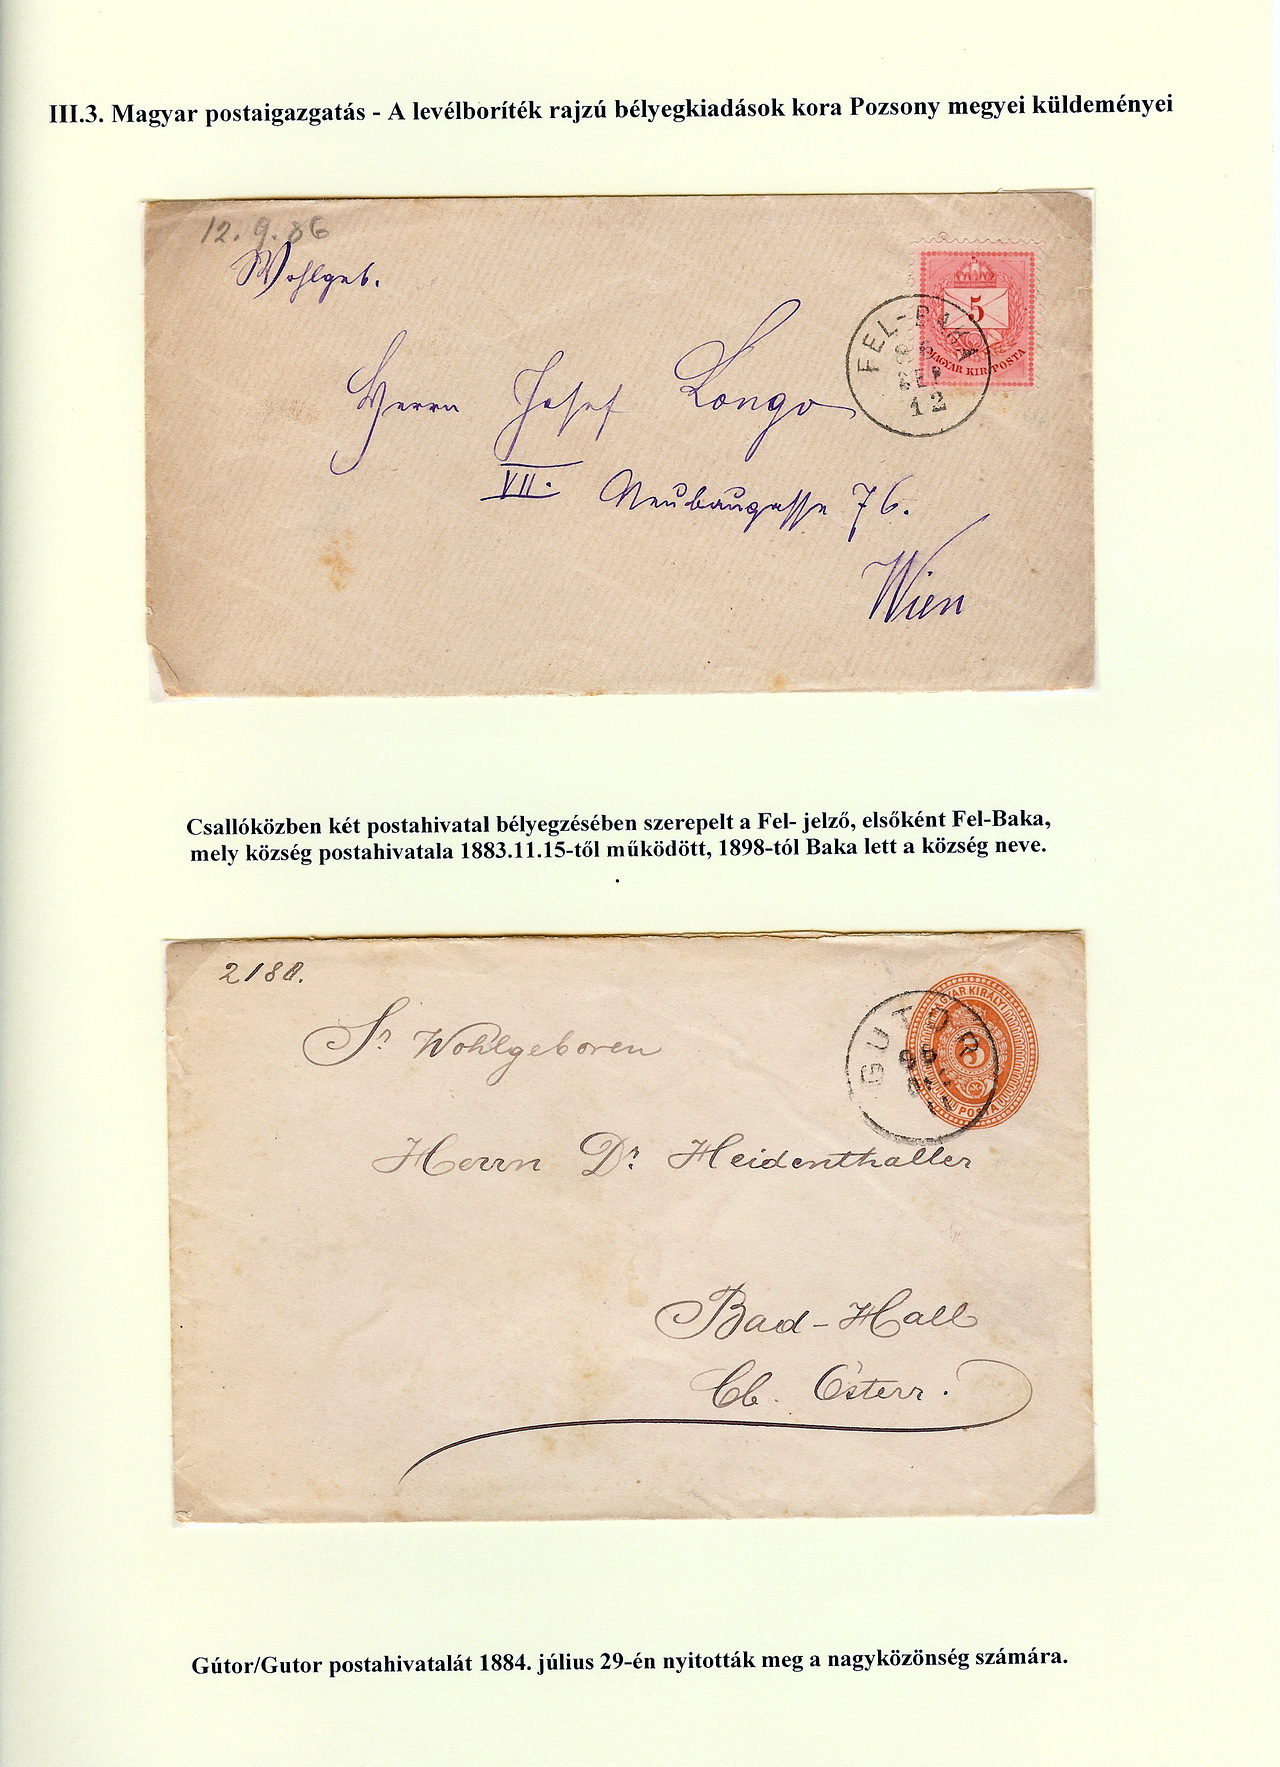 III.3. Magyar postaigazgatás - A levélboríték rajzú bélyegkiadások kora Pozsony megyei küldeményei
12.9.86
Wohlgeb.
5
MAGYAR KIR. POSTA
FEL-BAKA
86
SEP
12
Herrn Josef Longo
VII. Neubaugasse 76.
Wien
Csallóközben két postahivatal bélyegzésében szerepelt a Fel- jelző, elsőként Fel-Baka,
mely község postahivatala 1883.11.15-től működött, 1898-tól Baka lett a község neve.
.
MAGYAR KIRÁLYI
5
POSTA
GUTOR
Sr Wohlgeboren
Herrn Dr Heidenthaller
Bad-Hall
Ob. Österr.
Gútor/Gutor postahivatalát 1884. július 29-én nyitották meg a nagyközönség számára.